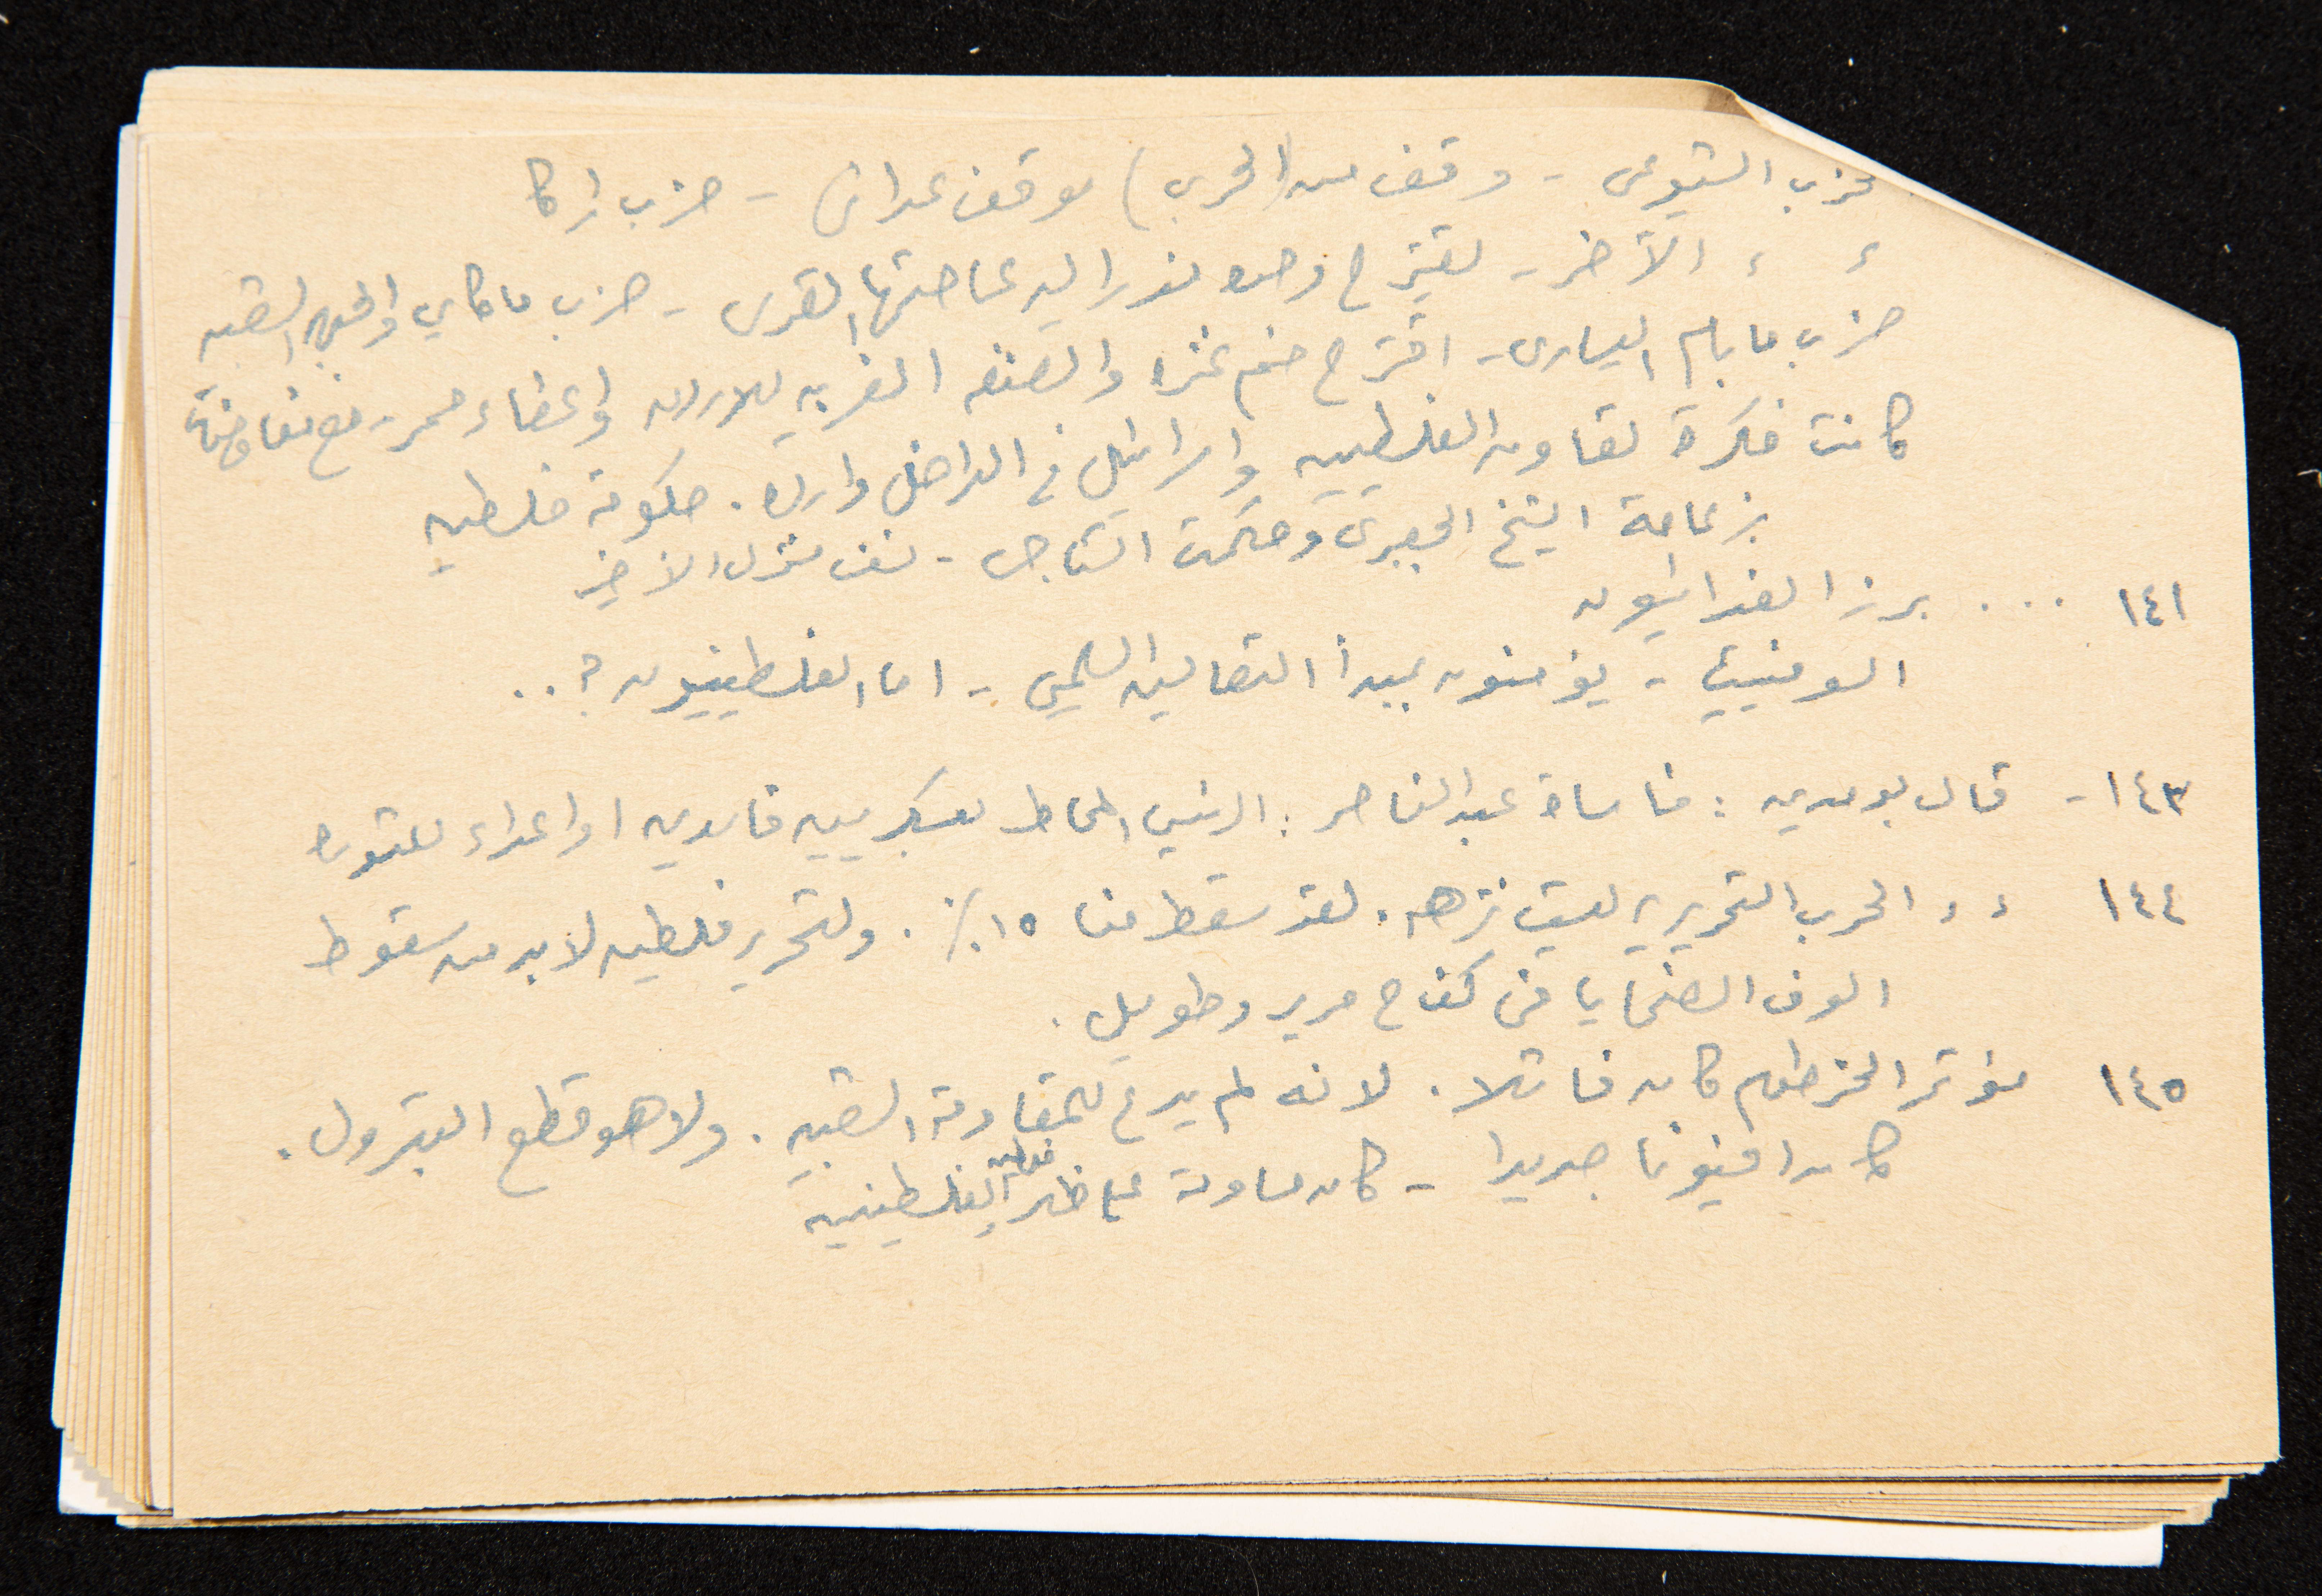 الحزب الشيوعي - وقف من (الحرب) موقف عدائي - حزب راكا
" " الآخر - يقترح وحدة فدرالية عاصمتها القدس - حزب ماكاي والجبهة الشعبية
حزب مابام اليساري - اقترح ضم غزة والضفة الغربية للاردن واعطاء ممر - مع مفاوضات
كانت فكرة تعاون الفلسطينيين واسرائيل في الداخل واردة . حكومة فلسطين
بزعامة الشيخ الجعبري وحكمت التاجي - نسف منزل الأخير
١٤١ ... برز الفدائيون
السوفييت - يؤمنون بمبدأ التعايش السلمي - اما الفلسطينيون ؟ ..
١٤٣ - قال بومدين : مأساة عبد الناصر : الرئيس المحاط بعسكريين فاسدين او اعداء للثورة
١٤٤ " " الحرب التحريرية ليست نزهة . لقد سقط منا ١٥ ٪ . ولتحرير فلسطين لا بد من سقوط
الوف الضحايا في كفاح مرير وطويل .
١٤٥ مؤتمر الخرطوم كان فاشلا . لانه لم يدع للمقاومة الشعبية . ولا هو قطع البترول .
كان افيونا جديدا - كان مساومة على ظهر الفلسطينيين
فلسطين